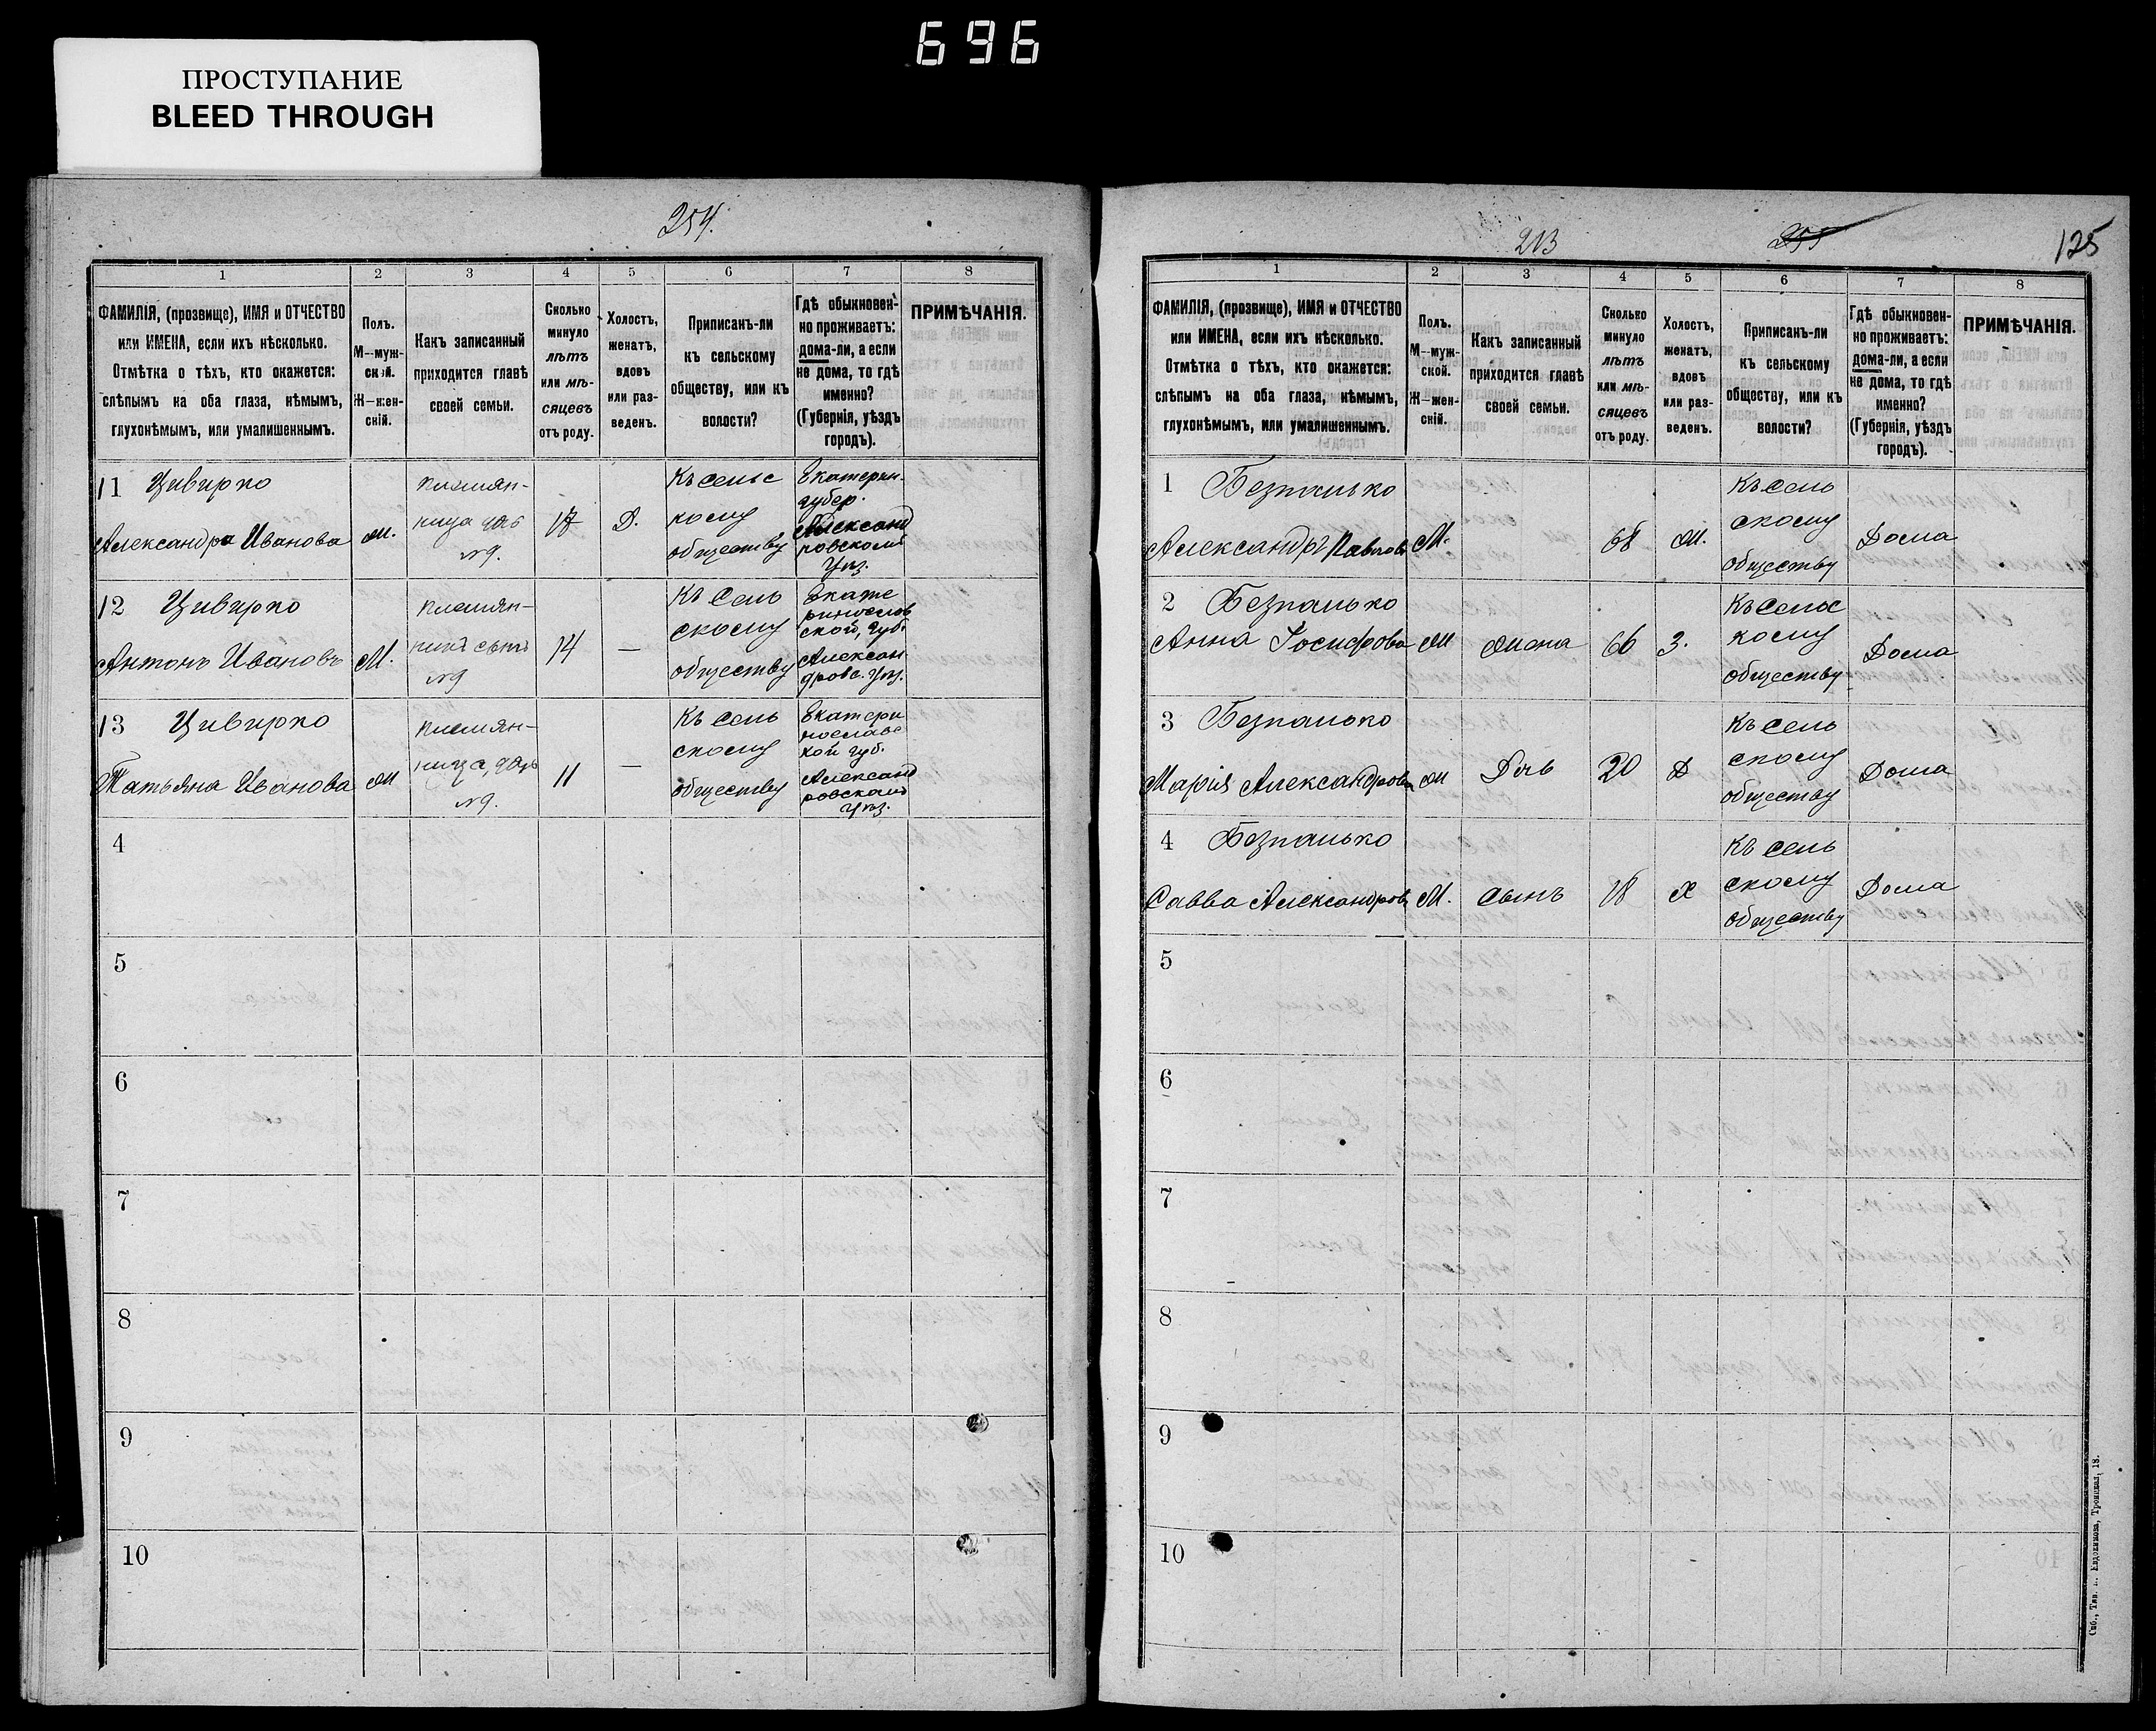 696
ПРОСТУПАНИЕ
BLEED THROUGH
254.
1 2 3 4 5 6 7 8
ФАМИЛІЯ, (прозвище), ИМЯ и ОТЧЕСТВО
или ИМЕНА, если ихъ нѣсколько.
Отмѣтка о тѣхъ, кто окажется:
слѣпымъ на оба глаза, нѣмымъ,
глухонѣмымъ, или умалишеннымъ.
Полъ.
М—муж-
ской.
Ж—жен-
скій.
Какъ записанный
приходится главѣ
своей семьи.
Сколько
минуло
лѣтъ
или мѣ-
сяцевъ
отъ роду.
Холостъ,
женатъ,
вдовъ
или раз-
веденъ.
Приписанъ-ли
къ сельскому
обществу, или къ
волости?
Гдѣ обыкновен-
но проживаетъ:
дома-ли, а если
не дома, то гдѣ
именно?
(Губернія, уѣздъ
городъ).
ПРИМѢЧАНІЯ.
11 Цивирко
Александра Иванова
м.
племян-
ница
№9.
17
Д.
Къ сельс
кому
обществу
Екатерин.
губер.
Александ
ровскомъ
Уѣз.
12 Цивирко
Антонъ Ивановъ
М.
племян-
никъ сынъ
№9
14
—
Къ сель
скому
обществу
Екате
ринослов
ской, Губ.
Алексан
дровс. Уѣз.
13 Цивирко
Татьяна Иванова
м
племян-
ница,
№9.
11
—
Къ сель
скому
обществу
Екатери
нославс
кой Губ.
Александ
ровскомъ
Уѣз.
4
5
6
7
8
9
10
213
255
125
1 2 3 4 5 6 7 8
ФАМИЛІЯ, (прозвище), ИМЯ и ОТЧЕСТВО
или ИМЕНА, если ихъ нѣсколько.
Отмѣтка о тѣхъ, кто окажется:
слѣпымъ на оба глаза, нѣмымъ,
глухонѣмымъ, или умалишеннымъ.
Полъ.
М—муж-
ской.
Ж—жен-
скій.
Какъ записанный
приходится главѣ
своей семьи.
Сколько
минуло
лѣтъ
или мѣ-
сяцевъ
отъ роду.
Холостъ,
женатъ,
вдовъ
или раз-
веденъ.
Приписанъ-ли
къ сельскому
обществу, или къ
волости?
Гдѣ обыкновен-
но проживаетъ:
дома-ли, а если
не дома, то гдѣ
именно?
(Губернія, уѣздъ
городъ).
ПРИМѢЧАНІЯ.
1 Безпалько
Александръ Павловъ
М.
68
Ж.
Къ сель
скому
обществу
Дома
2 Безпалько
Анна Іосифова
Ж
Жена
66
З.
Къ сельс
кому
обществу
Дома
3 Безпалько
Марія Александрова
Ж
Дочь
20
Д
Къ сель
скому
обществу
Дома
4 Безпалько
Савва Александровъ
М.
Сынъ
18
Х
Къ сель
скому
обществу
Дома
5
6
7
8
9
10
Спб., Тип. Евдокимова, Троицкая, 18.